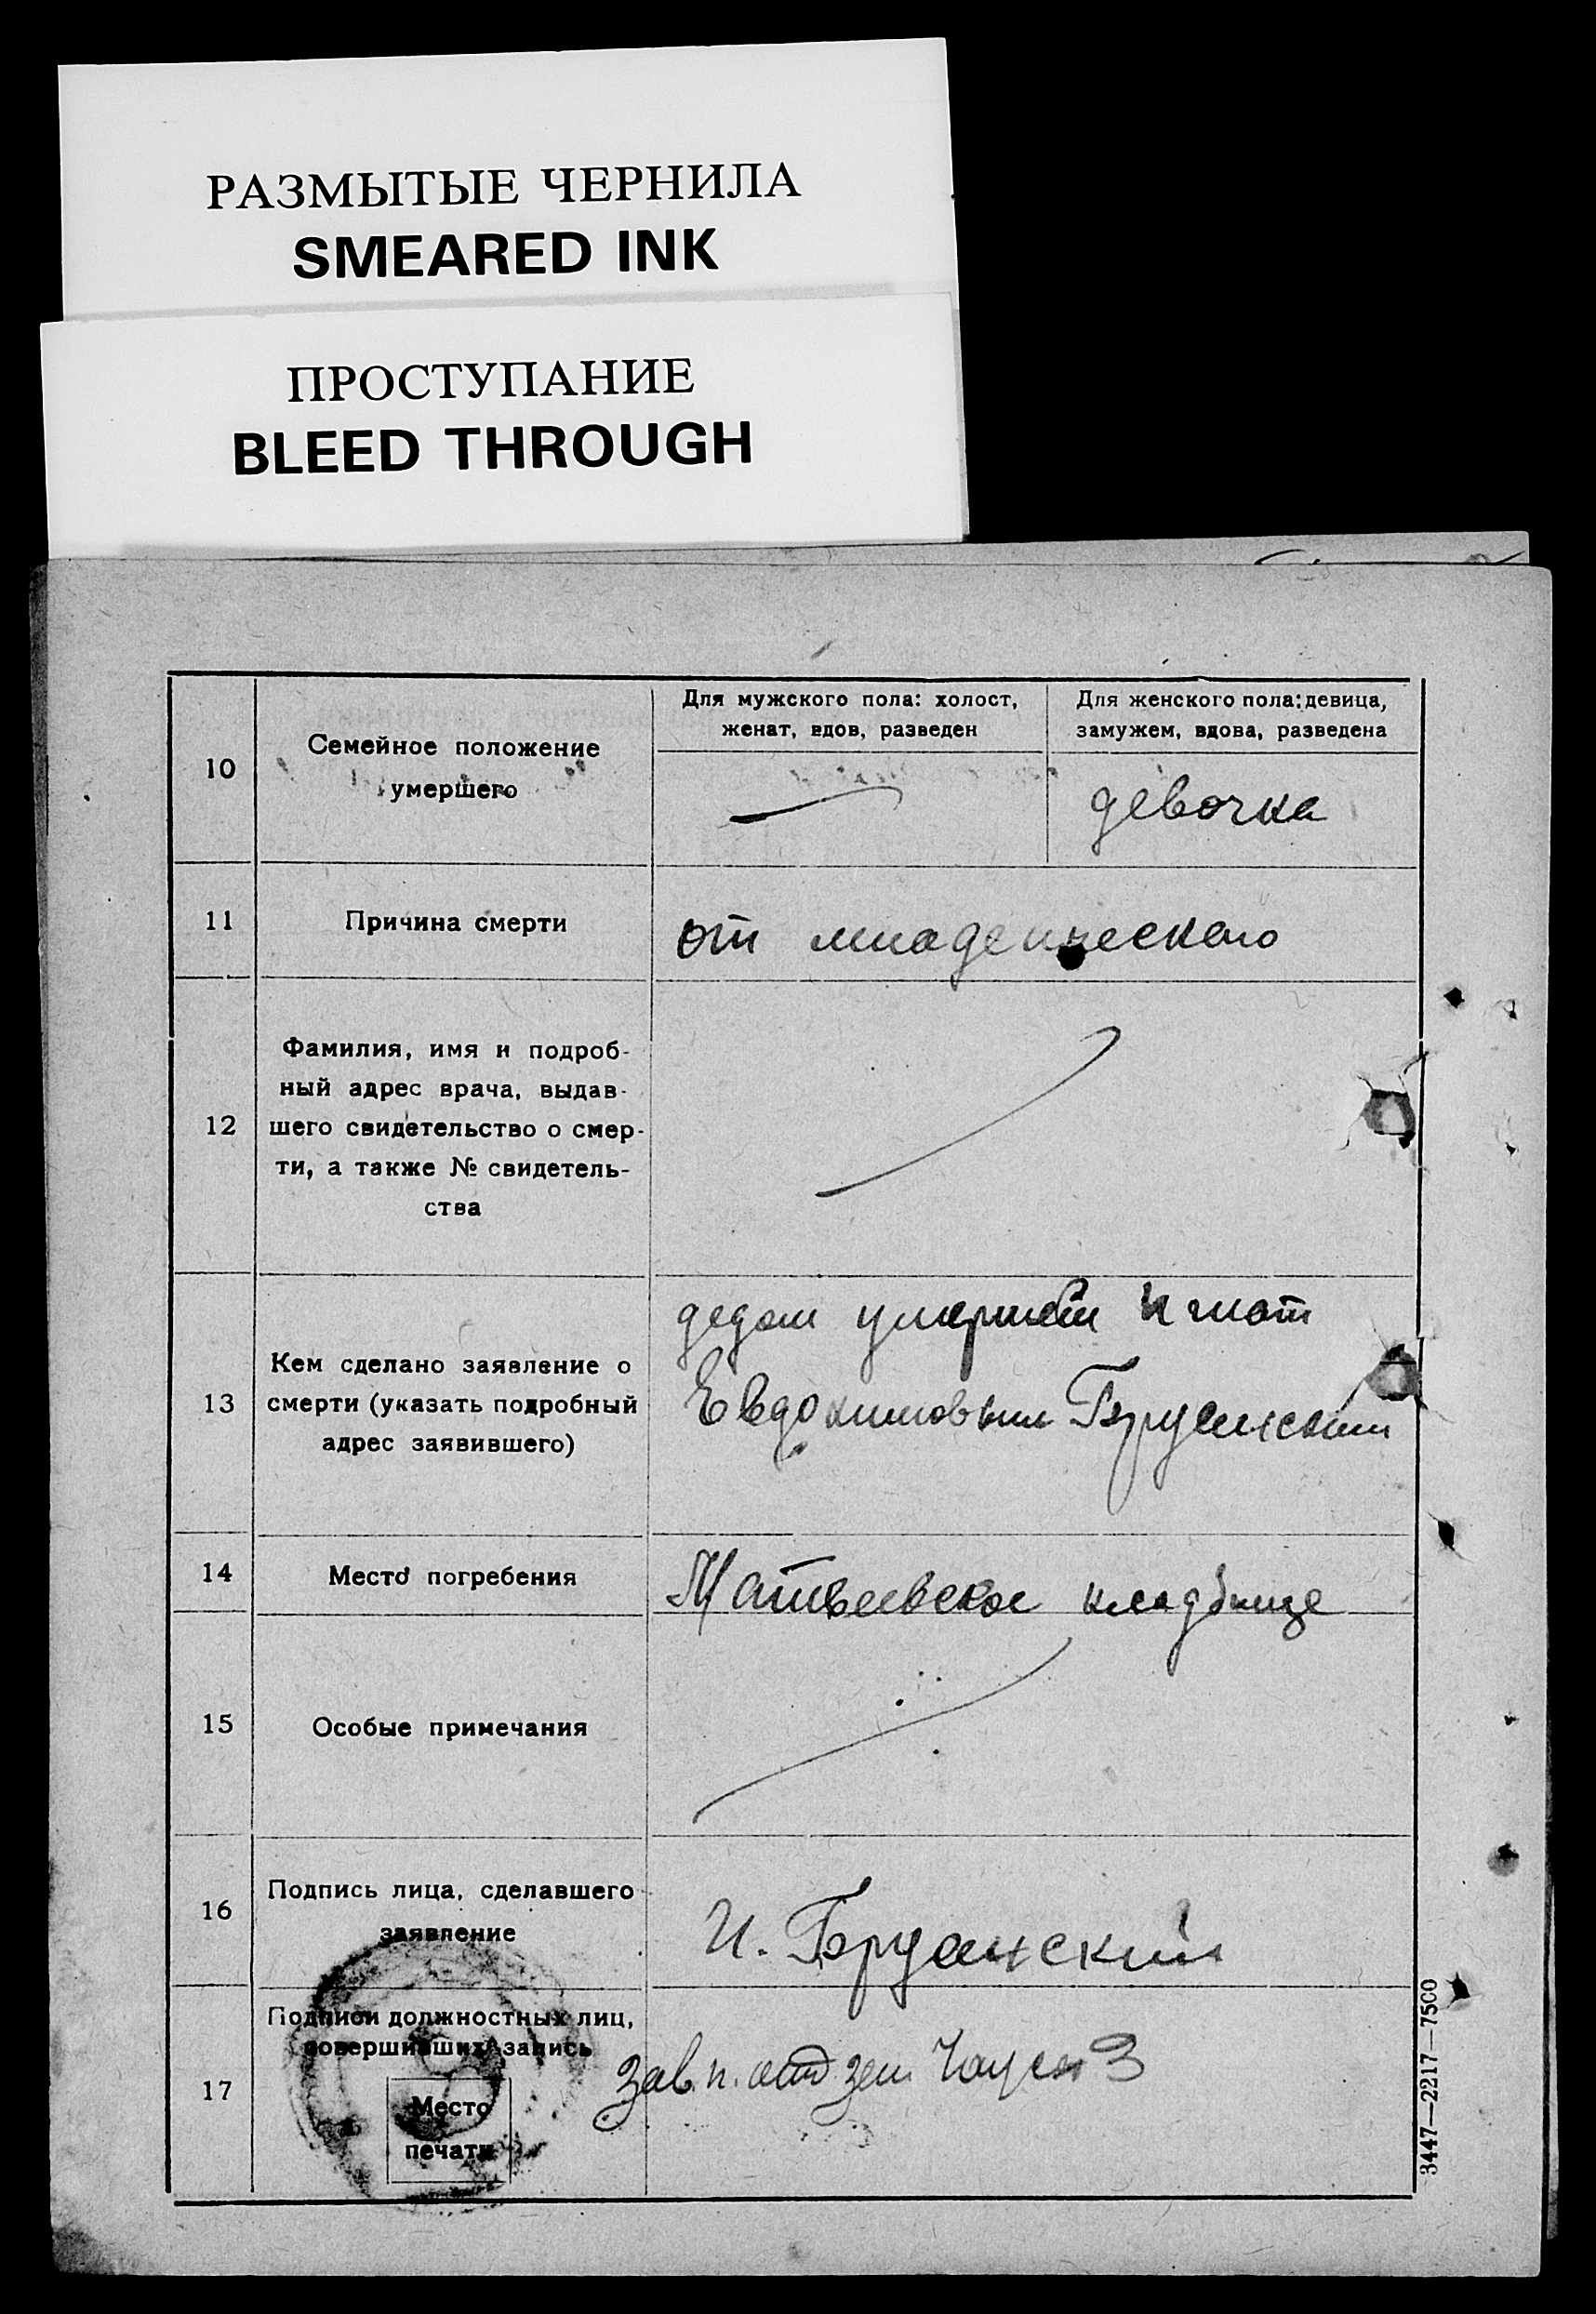 РАЗМЫТЫЕ ЧЕРНИЛА
SMEARED INK
ПРОСТУПАНИЕ
BLEED THROUGH
10
Семейное положение
умершего
Для мужского пола: холост,
женат, вдов, разведен
Для женского пола: девица,
замужем, вдова, разведена
девочка
11
Причина смерти
от младенческого
12
Фамилия, имя и подроб-
ный адрес врача, выдав-
шего свидетельство о смер-
ти, а также № свидетель-
ства
13
Кем сделано заявление о
смерти (указать подробный
адрес заявившего)
дедом умершей Игнат
Евдокимовым
14
Место погребения
Матвеевское кладбище
15
Особые примечания
16
Подпись лица, сделавшего
заявление
И.
17
Подписи должностных лиц,
совершивших запись
Место
печати
Зав. п.
3447—2217—7500